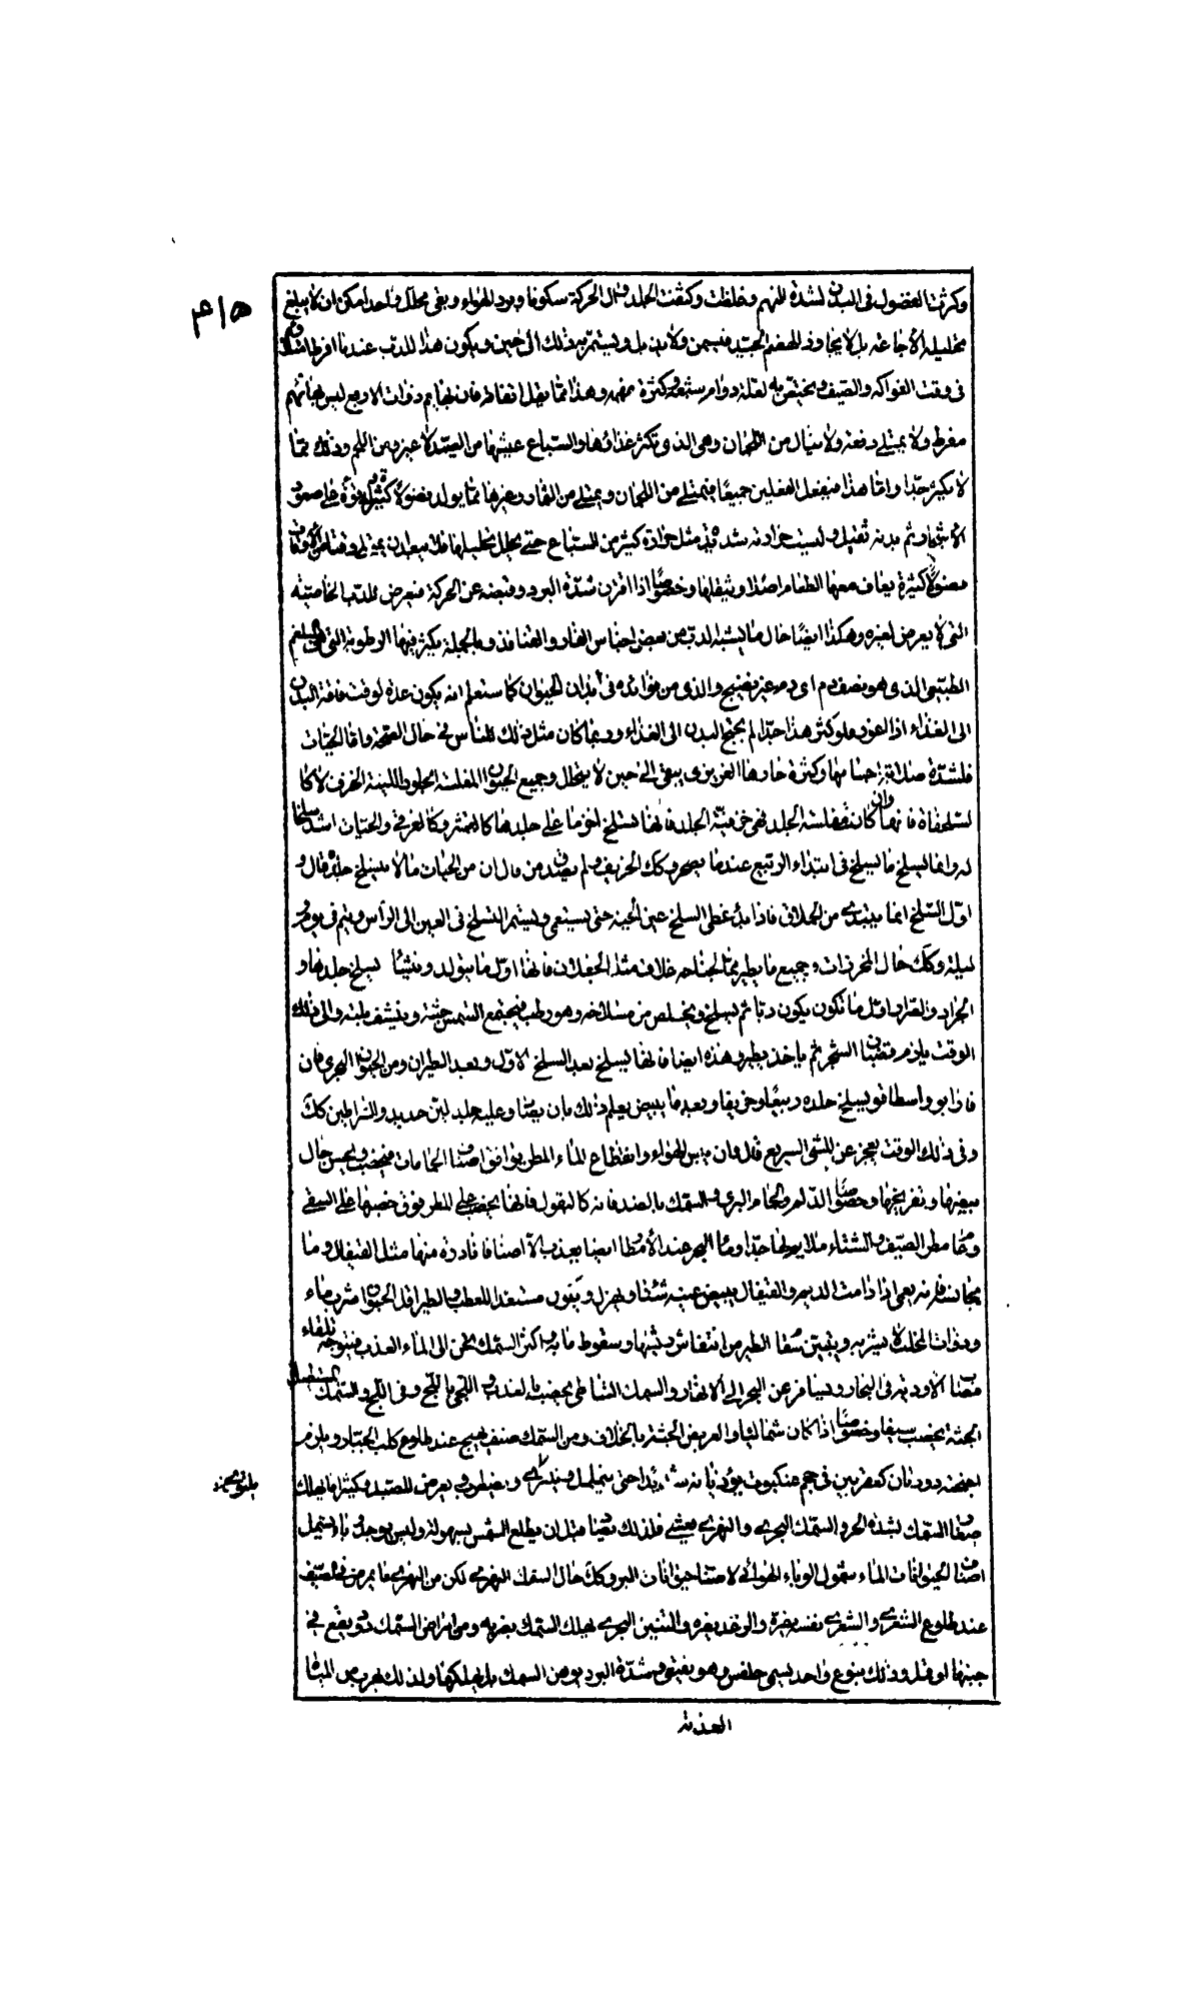 وكثرت الفضول فى البدن لشدة النهم وغلظت وكثفت الجلد ومال الحركة سكونا وبرد الهواء وبقى محلل واحد امكن ان لا يبلغ
تحليله الاجاعة بل لا يجاوز الهضم الجيد فيسمن ولا يذبل ويستمر به ذلك الى حين ويكون هذا للدب عندما افرط
فى وقت الفواكه والصيف ويختص به لقلة دوام شبعه وكثرة نهمه وهذا مما يقل اتفاقه فان البهايم ذوات الاربع ليس
مفرط ولا يمتلى دفعة ولا ينال من اللحمان وهى الذى تكثر غذاؤها والسباع عيشها من الصيد لا غير ومن اللحم وذلك مما
لا يكثر جدا واما هذا فيفعل الفعلين جميعا فيمتلى من اللحمان ويمتلى من الثمار وغيرها مما يولد فضولا كثيرة
الاشجار ثم بدنه ثقيل وليست حرارته شديدة مثل حرارة كثير من السباع حتى يحلل تحليلها فلا يبعد ان يمتلى وقتا من الاوقات
فضولا كثيرة يعاف معها الطعام اصلا ويثقلها وخصوصا اذا اقترن شدة البرد ومنعته عن الحركة فيعرض للدب الخاصية
التى لا يعرض لغيره وهكذا ايضا حال ما يشبه الدب من بعض اجناس الفار والقنافذ وبالجملة يكثر فيها الرطوبة التى هى البلغم
الطبيعى الذى هو نصف دم اى دم غير نضيج والذى من فوائده فى ابدان الحيوان كما ستعلم انه يكون عدة لوقت فاقة البدن
الى الغذاء اذا اعوز فلو كثر هذا جدا لم يحتج البدن الى الغذاء وربما كان مثل ذلك للناس فى حال الصحة واما الحيات
فلشدة صلابة اجسامها وكثرة حارها الغريزى يبقى الى حين لا يتحلل وجميع الحيوان المفلسة الجلود اللينة الخزف لا كا
لسلحفاة فانها وان كانت مفلسة الجلد فهى خزفية الجلد فانها تسلخ اخر ما على جلدها كالقشر وكالغرقئ والحيات اشد سلخا
له وانما ينسلخ ما ينسلخ فى ابتداء الربيع عندما يصحر وكك الخريف ولم يصدق من قال ان من الحيات ما لا ينسلخ جلده قال و
اول السلخ انما يبتدى من الحملاق فاذا بدا غطى السلخ عين الحية حتى يستعمى ويستمر السلخ فى العين الى الراس ويتم فى يوم و
ليلة وكك حال المخرزات وجميع ما يطير بجناحه خلاف مثل الجعلان فانها اول ما يتولد وينشأ يسلخ جلدها و
الجراد والصراد اول ما تكون يكون دبا ثم يسلخ ويخلص من مسلاخه وهو رطب فيجمع الشمس جثته وينشف بلته والى ذلك
الوقت يلزم قضبان الشجر ثم ياخذ يطير وهذه ايضا فانها يسلخ بعد السلخ الاول وبعد الطيران ومن الحيوان البحرى فان
فارابو واسطافو يسلخ جلده ربيعا وخريفا وبعد ما يبيض يعلم ذلك بان يصاد وعليه جلد لين جديد والسراطين كك
وفى ذلك الوقت يعجز عن المشى السريع قال وان يبس الهواء وانقطاع الماء المطر يوافق اصناف الحمامات فيخصب ويحسن حال
بيضها وتفريخها وخصوصا الدلم والحمام البرى والسمك بالضد فانه كالبقول فانها يخصب على المطر فوق خصبها على السقى
واما مطر الصيف والشتاء فلا يوافقها جدا وماء البحر عند الامطار ايضا يعذب الا اصنافا نادرة منها مثل القيفال وما
يجانسه فانه يعمى اذا دامت الديم والقيفال يبيض عينه شتاء ويهزل ويكون مستعدا للعطب والطير اقل الحيوان شرب ماء
وذوات المخلب لا يشربه ويتبين سقم الطير من انتفاش ريشها وسقوط ما به اكثر السمك يحن الى الماء العذب فيتوجه تلقاء
مصاب الاودية فى البحار ويسافر عن البحر الى الانهار والسمك الشاطى يخصب بالعذب واللجى باللج وفى اللج والسمك المستطيل
الجثة يخصب سيفا وخصوصا اذا كان شماليا والعريض الجثة بالخلاف ومن السمك صنف يهيج عند طلوع كلب الجبار ويلزم
اجنحته دودتان كعقربين فى حجم عنكبوت يؤذيانه شديدا حتى يتململ ويضطرب ويعرض للصيد وكثيرا ما يهلك
صغار السمك لشدة الحر والسمك البحرى والنهرى يعشى فلذلك يصاد قبل ان يطلع الشمس بسهولة وليس يوجد وبا يشمل
اصناف الحيوانات الماء شمول الوباء الهوائى لاصناف حيوانات البر وكك حال السمك النهرى لكن من النهرى ما يمرض فى الصيف
عند طلوع الشعرى والشعرى نفسه يضره والرعد يضره والتنين البحرى يهلك السمك بضربه ومن امراض السمك دود يقع فى
جنبها او قمل وذلك بنوع واحد يسمى حلفس وهو يفتق وشدة البرد يوهن السمك بل يهلكها ولذلك يهرب من المياه
العذبة